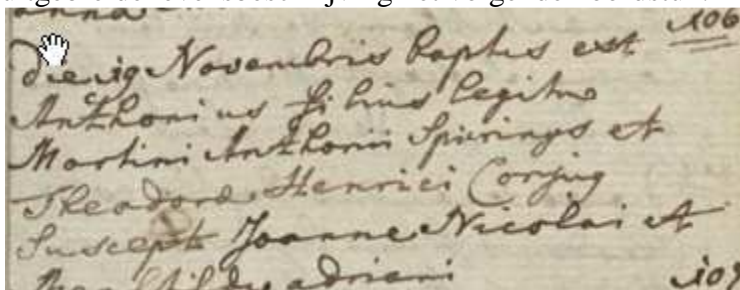 anna 106
die 19 Novembris baptus est
Anthonius filius legitmo
Martini Anthonii Spierings et
Theodora Henrici Conjug
Suscept Joanne Nicolai et
adriani 107